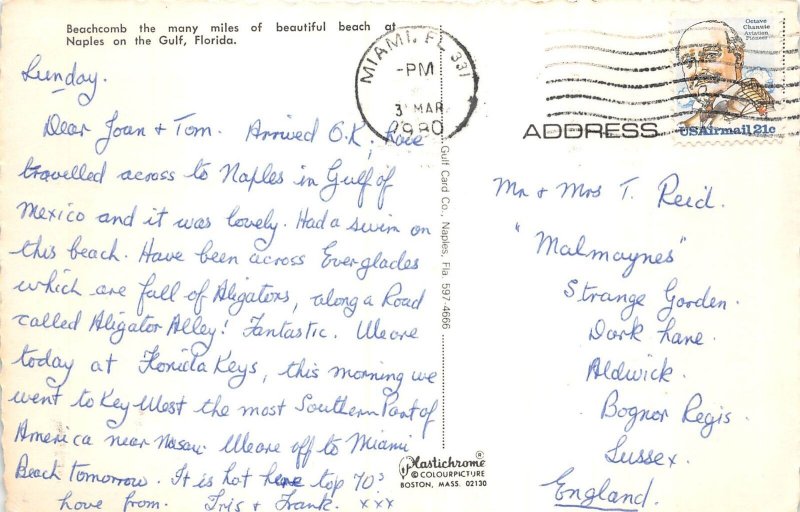 Beachcomb the many miles of beautiful beach at
Naples on the Gulf, Florida.
Sunday.
Dear Joan & Tom. Arrived O.K, Have
travelled across to Naples in Gulf of
Mexico and it was lovely. Had a swim on
this beach. Have been across Everglades
which are full of Aligators, along a Road
called Aligator Alley! Fantastic. We are
today at Florida Keys, this morning we
went to Key West the most Southern Part of
America near Nasau. We are off to Miami
Beach tomorrow. It is hot here top 70s
Love from. Iris & Frank. xxx
MIAMI, FL 331
-PM
3 MAR
1980
Gulf Card Co., Naples, Fla. 597-4666
Plastichrome ®
© COLOURPICTURE
BOSTON, MASS. 02130
Octave
Chanute
Aviation
Pioneer
USAirmail 21c
ADDRESS
Mr & Mrs T. Reid.
"Malmaynes"
Strange Garden.
Dark Lane.
Aldwick.
Bognor Regis.
Sussex.
England.